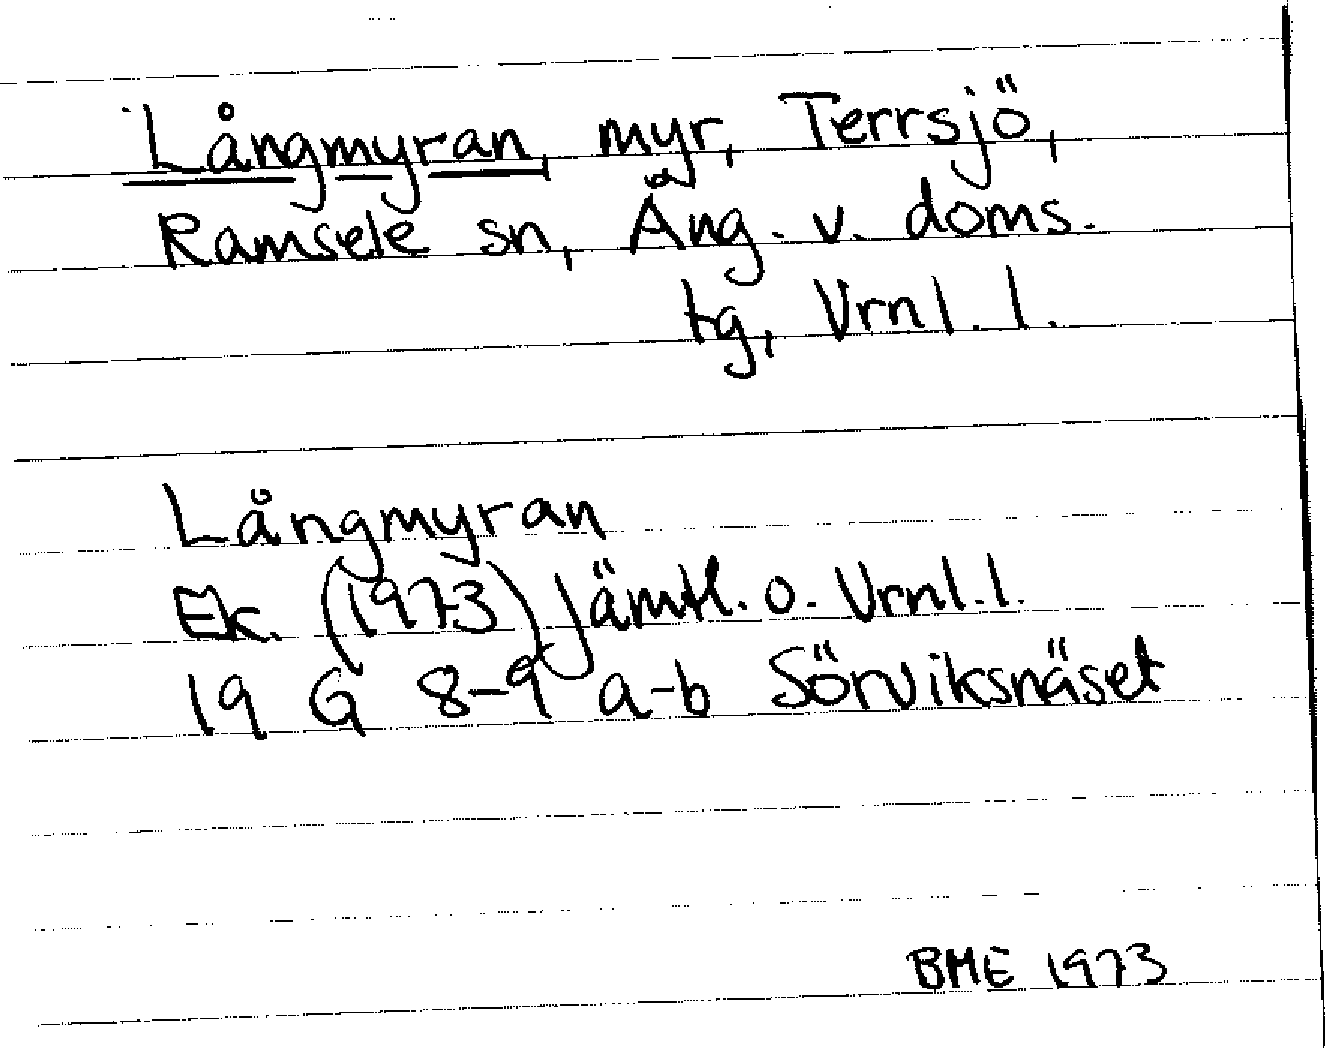 Långmyran, myr, Terrsjö,
Ramsele sn, Ång. v. doms.
tg, Vrnl. l.
Långmyran
Ek. (1973) Jämtl. o. Vrnl. l.
19 G 8-9 a-b Sörviksnäset
BME 1973